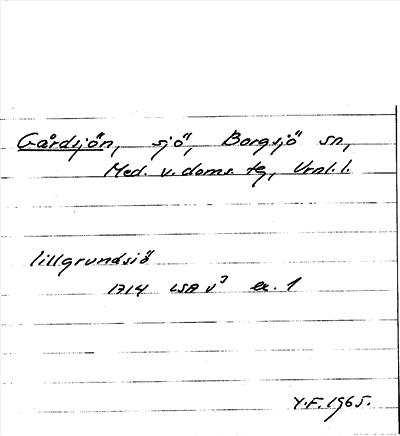 Gårdsjön, sjö, Borgsjö sn,
Med. v. doms. tg, Vrnl. l.
lillgrundsiö
1714 LSA V3 ex. 1
Y.F. 1965.